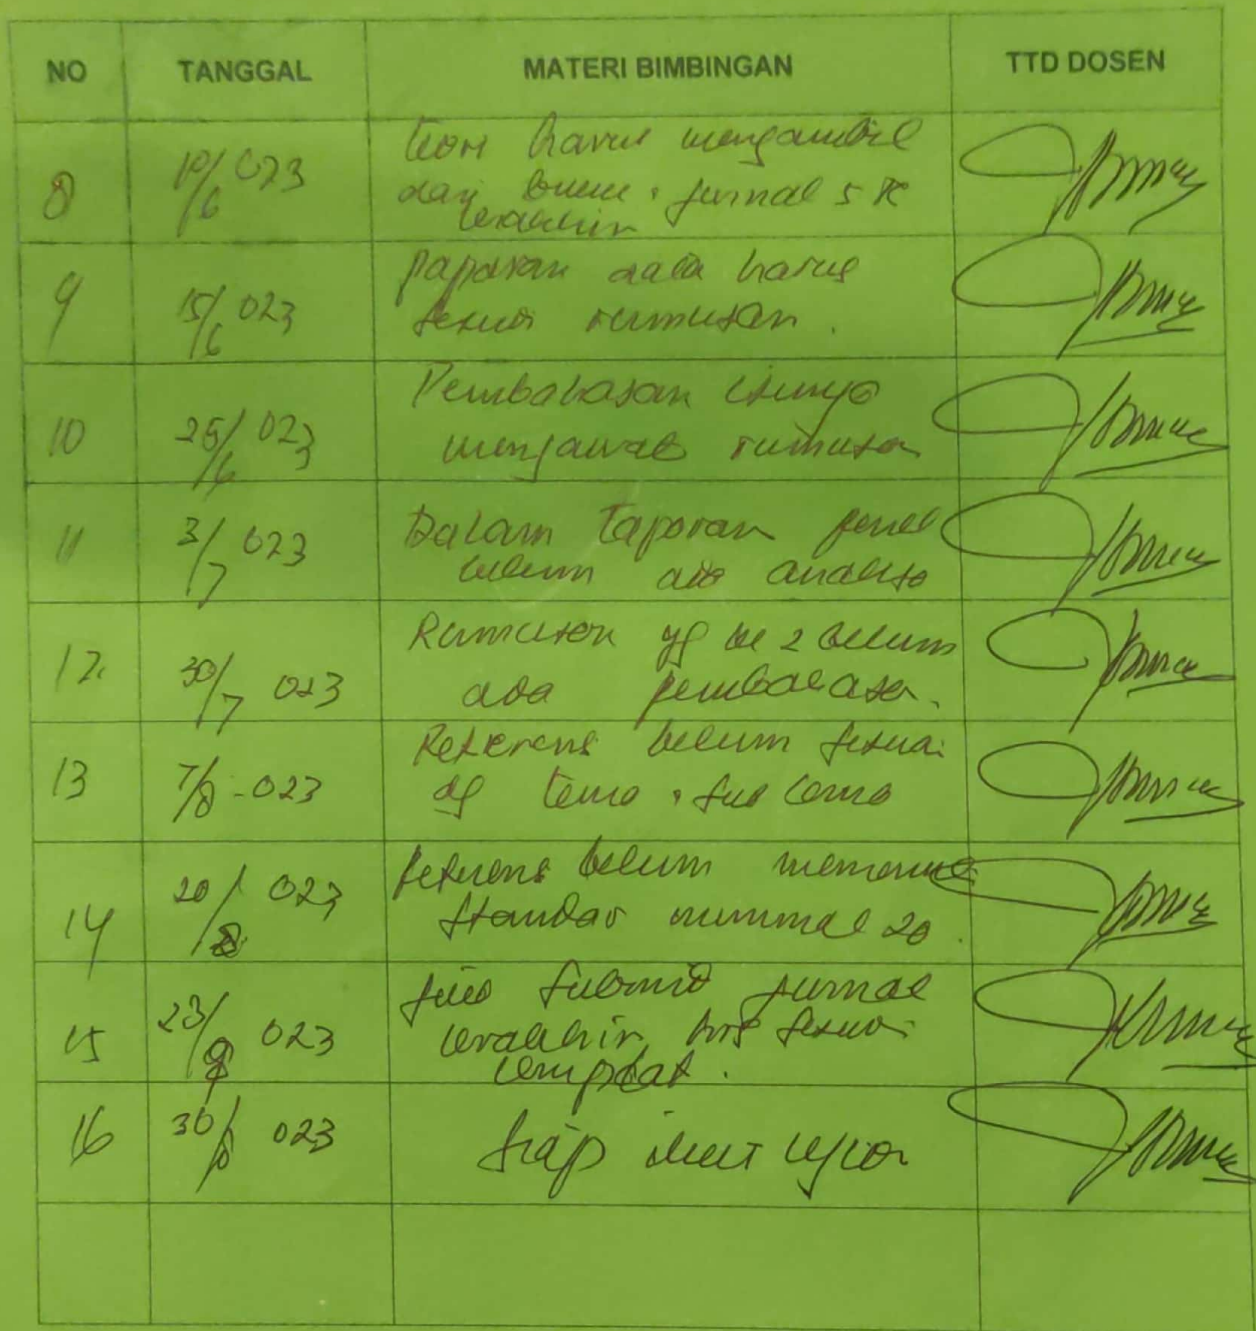 NO TANGGAL MATERI BIMBINGAN TTD DOSEN
8 10/6 023 teori harus mengambil
dari buku, jurnal 5 th
terakhir
9 15/6 023 paparan data harus
sesuai rumusan.
10 26/6 023 Pembahasan isinya
menjawab rumusan
11 3/7 023 Dalam laporan penel
belum ada analisa
12. 30/7 023 Rumusan yg ke 2 belum
ada pembahasan.
13 7/8 - 023 Referens belum sesuai
dg tema, sub tema
14 20/8 023 Referens belum memenuhi
standar minimal 20.
15 23/8 023 submid jurnal
terakhir hrs sesuai
templat.
16 30/8 023 siap ikut ujian